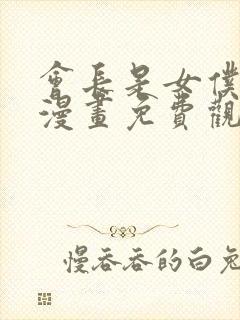 會長是女僕
漫畫免費觀
慢吞吞的白兔